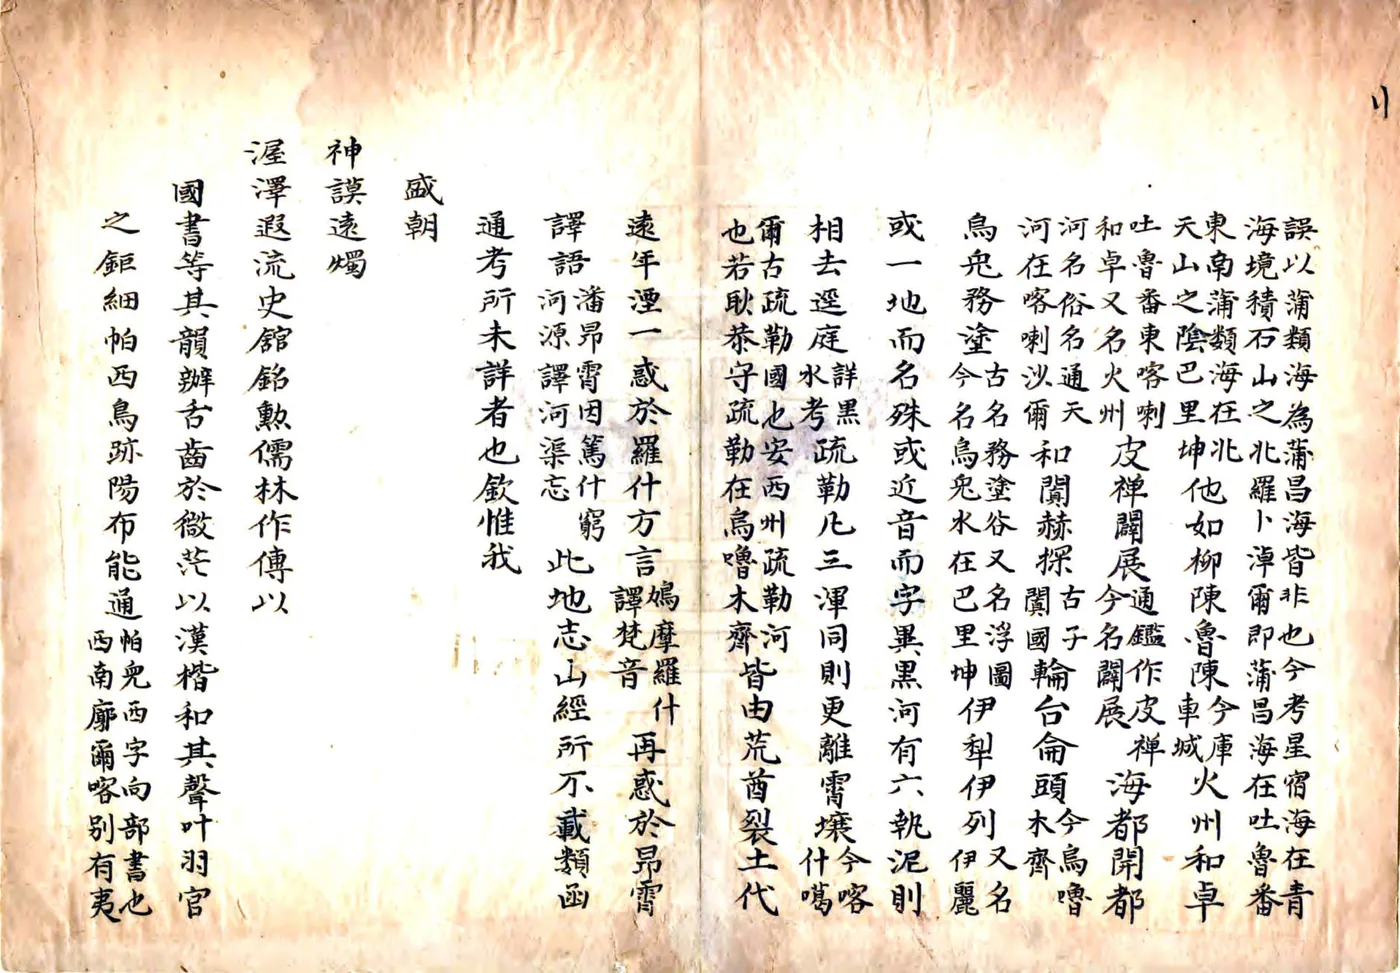 誤以蒲類海為蒲昌海皆非也今考星宿海在青
海境積石山之北羅卜淖爾即蒲昌海在吐魯番
東南蒲類海在北天山之陰巴里坤他如柳陳魯陳今庫車城火州和卓
吐魯番東喀喇和卓又名火州皮禪闢展通鑑作皮禪今名闢展海都開都
河名俗名通天河在喀喇沙爾和闐赫探古子闐國輪台侖頭今烏嚕木齊
烏兔務塗古名務塗谷又名浮圖今名烏兔水在巴里坤伊犁伊列又名伊麗
或一地而名殊或近音而字異黑河有六執泥則
相去逕庭詳黑水考疏勒凡三渾同則更離霄壤今喀什噶
爾古疏勒國也安西州疏勒河也若耿恭守疏勒在烏嚕木齊皆由荒酋裂土代
遠年湮一惑於羅什方言鳩摩羅什譯梵音再惑於昂霄
譯語潘昂霄因篤什窮河源譯河渠志此地志山經所不載類函
通考所未詳者也欽惟我
盛朝
神謨遠燭
渥澤遐流史舘銘勲儒林作傳以
國書等其韻辦舌齒於微茫以漢楷和其聲叶羽宮
之鉅細帕西鳥跡陽布能通帕兒西字向部書也西南廓爾喀別有夷